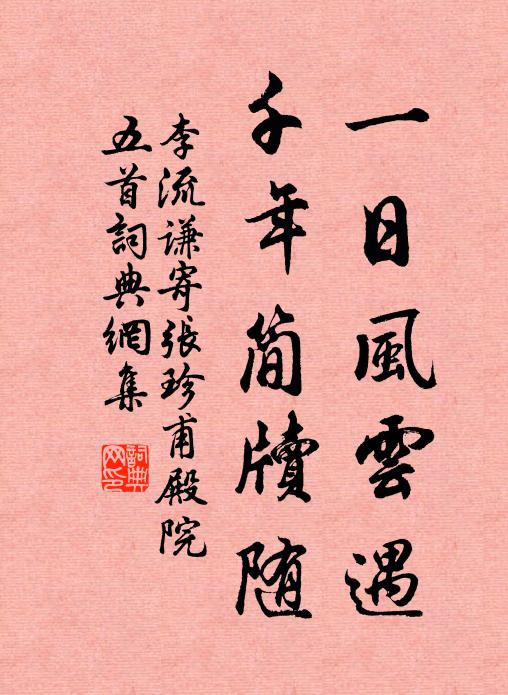 一日風雲遇
千年簡牘随
李流謙寄張珍甫殿院
五首詞典網集
詞典網印